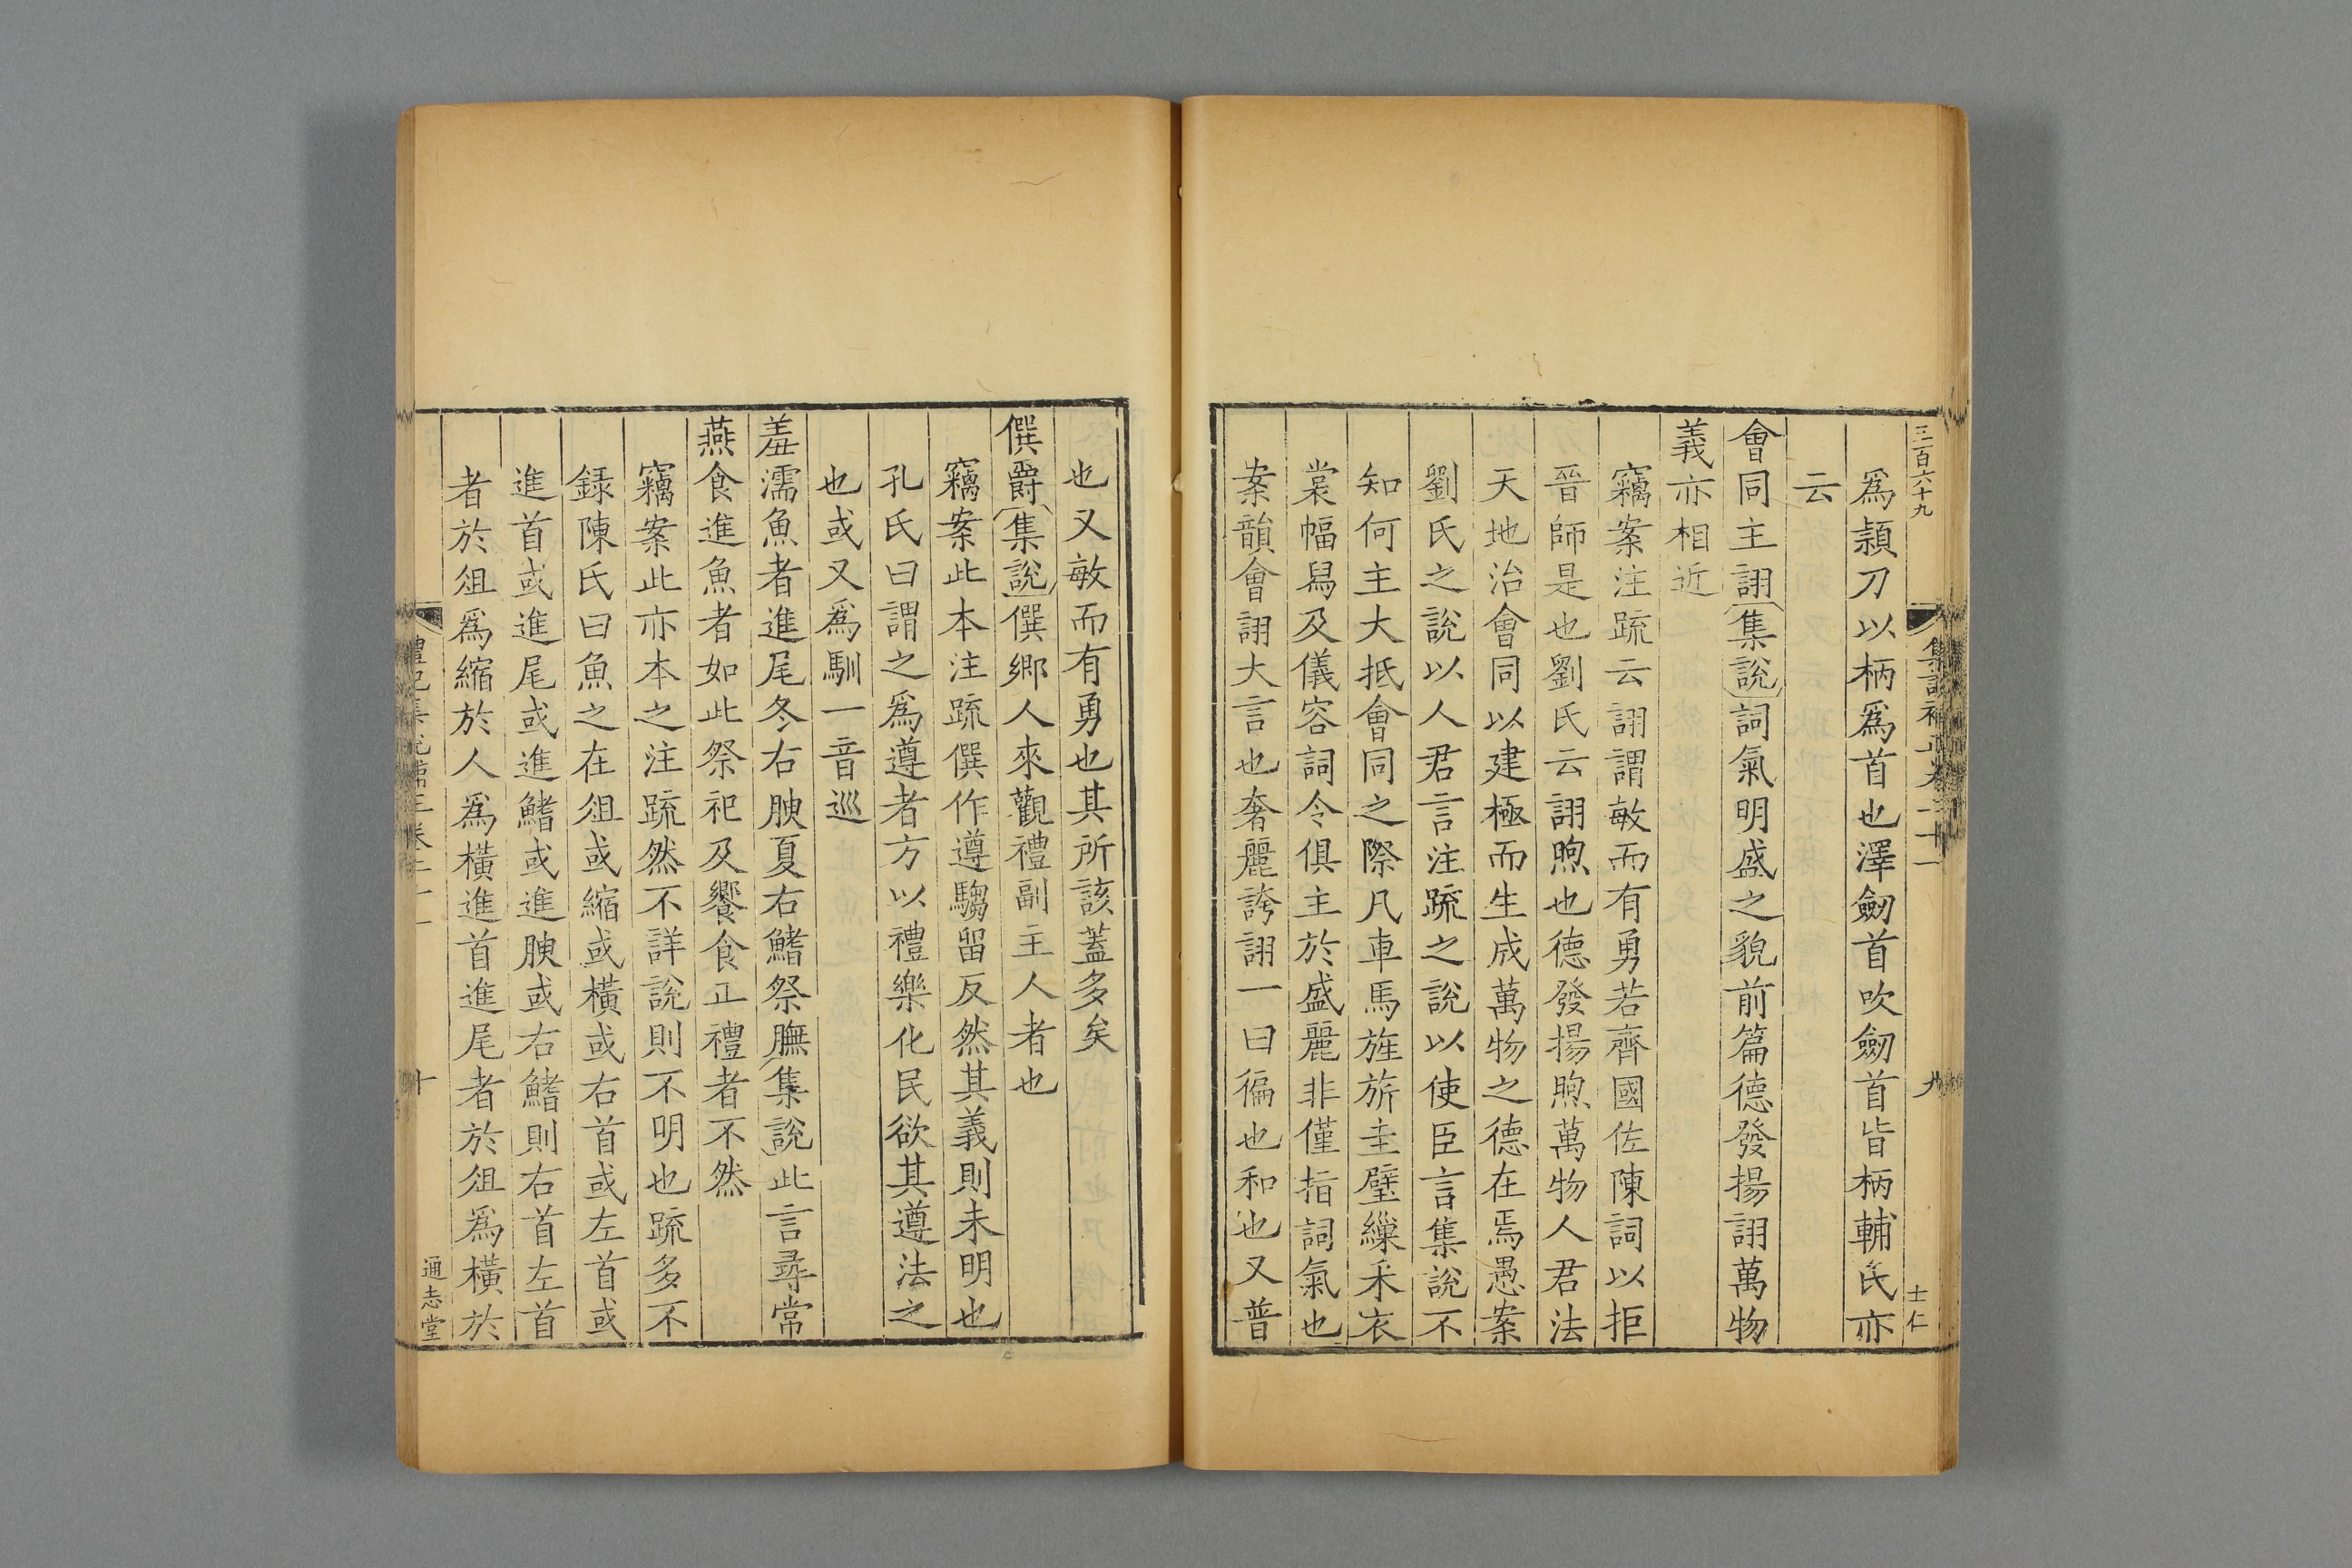 三百六十九
集說補正卷二十一
九
士仁
爲頴刀以柄爲首也澤劒首吹劒首皆柄輔氏亦
云
會同主詡集說詞氣明盛之貌前篇德發揚詡萬物
義亦相近
竊案注疏云詡謂敏而有勇若齊國佐陳詞以拒
晉師是也劉氏云詡煦也德發揚煦萬物人君法
天地治會同以建極而生成萬物之德在焉愚案
劉氏之說以人君言注疏之說以使臣言集說不
知何主大抵會同之際凡車馬旌旂圭璧繅釆衣
裳幅舄及儀容詞令俱主於盛麗非僅指詞氣也
案韻會詡大言也奢麗誇詡一曰徧也和也又普
也又敏而有勇也其所該蓋多矣
僎爵集說僎鄉人來觀禮副主人者也
竊案此本注疏僎作遵騶留反然其義則未明也
孔氏曰謂之爲遵者方以禮樂化民欲其遵法之
也或又爲馴一音巡
羞濡魚者進尾冬右腴夏右鰭祭膴集說此言尋常
燕食進魚者如此祭祀及饗食正禮者不然
竊案此亦本之注疏然不詳說則不明也疏多不
録陳氏曰魚之在俎或縮或橫或右首或左首或
進首或進尾或進鰭或進腴或右鰭則右首左首
者於俎爲縮於人爲橫進首進尾者於俎爲橫於
禮記集說補正卷二十一
十
通志堂